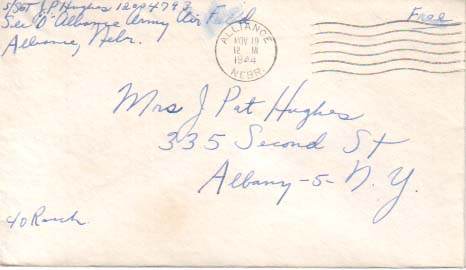 S/Sgt J.P. Hughes 12094793
Sec "O" Alliance Army Air Field
Alliance, Nebr.
Free
ALLIANCE
NOV 19
12 M
1944
NEBR.
Mrs J Pat Hughes
335 Second St
Albany-5-N.Y.
c/o Rasch